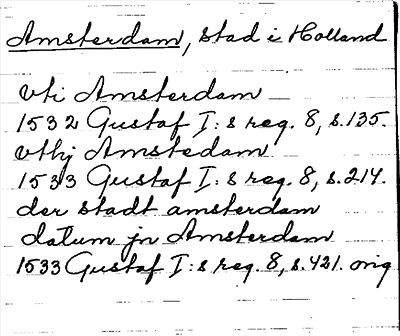 Amsterdam, stad i Holland
vti Amsterdam
1532 Gustaf I:s reg. 8, s.135.
vthj Amstedam
1533 Gustaf I:s reg. 8, s.214.
der stadt amsterdam
datum jn Amsterdam
1533 Gustaf I:s reg. 8, s.421. orig